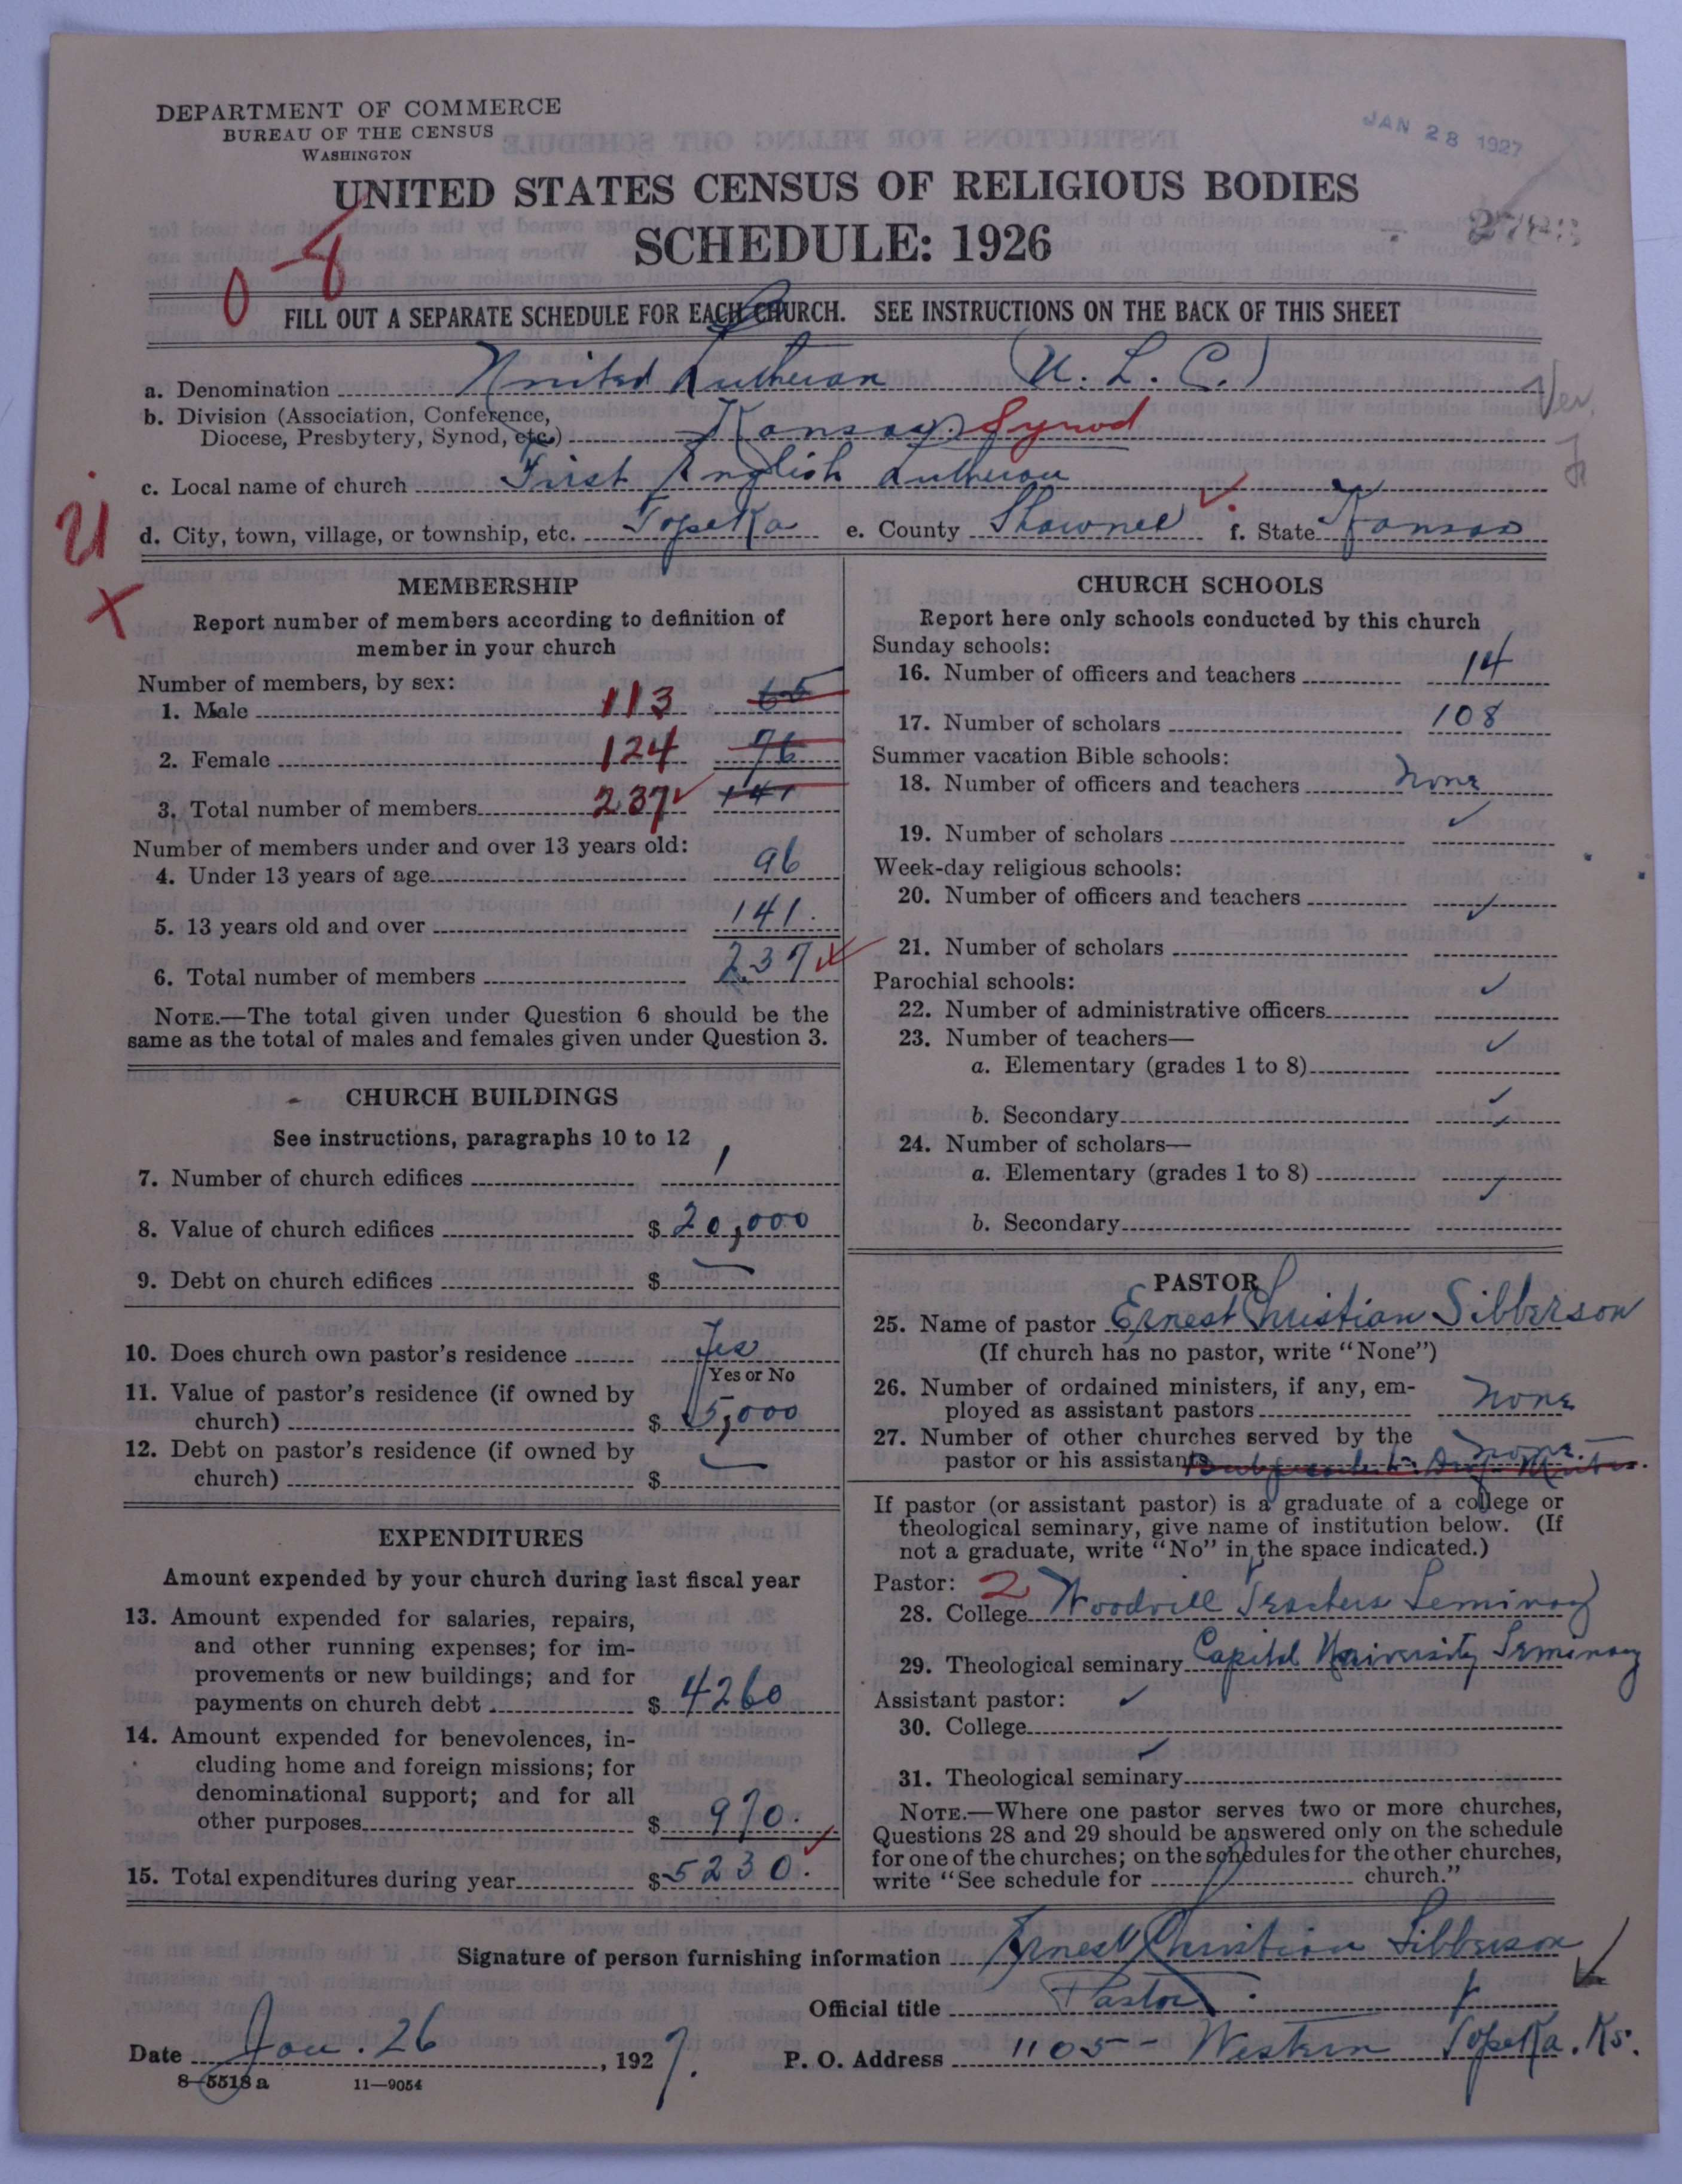 DEPARTMENT OF COMMERCE
BUREAU OF THE CENSUS
WASHINGTON
JAN 28 1927
UNITED STATES CENSUS OF RELIGIOUS BODIES
SCHEDULE: 1926
0-8
FILL OUT A SEPARATE SCHEDULE FOR EACH CHURCH. SEE INSTRUCTIONS ON THE BACK OF THIS SHEET
a. Denomination United Lutheran (U. L. C.)
b. Division (Association, Conference,
Diocese, Presbytery, Synod, etc.) Kansas Synod
c. Local name of church First English Lutheran
d. City, town, village, or township, etc. Topeka e. County Shawnee ✓ f. State Kansas
U
X
MEMBERSHIP
Report number of members according to definition of
member in your church
Number of members, by sex:
1. Male 113 65
2. Female 124 76
3. Total number of members 237 ✓ 141
Number of members under and over 13 years old:
4. Under 13 years of age 96
5. 13 years old and over 141.
6. Total number of members 237
NOTE.—The total given under Question 6 should be the
same as the total of males and females given under Question 3.
CHURCH BUILDINGS
See instructions, paragraphs 10 to 12
7. Number of church edifices 1
8. Value of church edifices $ 20,000
9. Debt on church edifices $ —
10. Does church own pastor's residence Yes
Yes or No
11. Value of pastor's residence (if owned by
church) $ 5,000
12. Debt on pastor's residence (if owned by
church) $ —
EXPENDITURES
Amount expended by your church during last fiscal year
13. Amount expended for salaries, repairs,
and other running expenses; for im-
provements or new buildings; and for
payments on church debt $ 4260
14. Amount expended for benevolences, in-
cluding home and foreign missions; for
denominational support; and for all
other purposes $ 970.
15. Total expenditures during year $ 5230.
CHURCH SCHOOLS
Report here only schools conducted by this church
Sunday schools:
16. Number of officers and teachers 14
17. Number of scholars 108
Summer vacation Bible schools:
18. Number of officers and teachers None
19. Number of scholars ✓
Week-day religious schools:
20. Number of officers and teachers ✓
21. Number of scholars
Parochial schools:
22. Number of administrative officers ✓
23. Number of teachers—
a. Elementary (grades 1 to 8) ✓
b. Secondary ✓
24. Number of scholars—
a. Elementary (grades 1 to 8) ✓
b. Secondary
PASTOR
25. Name of pastor Ernest Christian Sibberson
(If church has no pastor, write "None")
26. Number of ordained ministers, if any, em-
ployed as assistant pastors None
27. Number of other churches served by the
pastor or his assistants None
If pastor (or assistant pastor) is a graduate of a college or
theological seminary, give name of institution below. (If
not a graduate, write "No" in the space indicated.)
Pastor: 2
28. College Woodville Teachers Seminary
29. Theological seminary Capitol University Seminary
Assistant pastor: ✓
30. College
31. Theological seminary ✓
NOTE.—Where one pastor serves two or more churches,
Questions 28 and 29 should be answered only on the schedule
for one of the churches; on the schedules for the other churches,
write "See schedule for church."
Signature of person furnishing information Ernest Christian Sibberson
Official title Pastor.
Date Jan. 26, 1927. P. O. Address 1105 - Western Topeka. Ks.
8-5518 a 11—9054